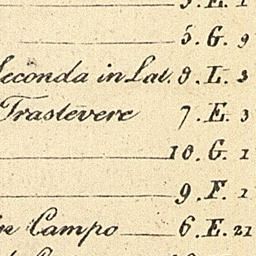 5. G. 9
Seconda in Lat. 9. L. 3
Trastevere 7. E. 3
10. G. 1
9. F. 1
in Campo 6. E. 21